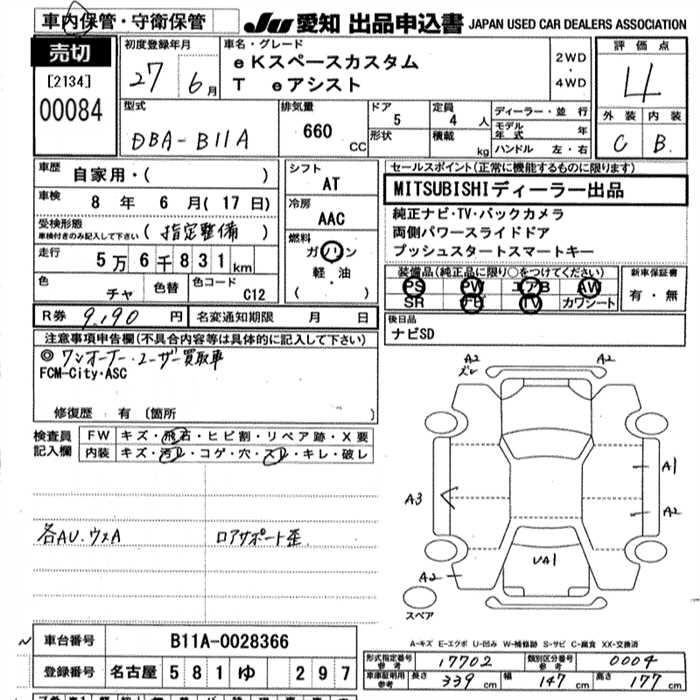 車内保管・守衛保管
JU 愛知 出品申込書 JAPAN USED CAR DEALERS ASSOCIATION
売切
[2134]
00084
初度登録年月
27 6月
車名・グレード
eKスペースカスタム
T eアシスト
2WD
・
4WD
評価点
4
外装 内装
C B
型式
DBA-B11A
排気量
660 CC
ドア 5
形状
定員 4 人
積載 kg
ディーラー・並行
モデル年式 年
ハンドル 左・右
車歴 自家用・( )
車検 8年 6月(17日)
受検形態
車検付きのみ記入して下さい (指定整備)
走行 5万6千831km
色 チャ 色替 色コード C12
シフト
AT
冷房
AAC
燃料
ガソリン
軽・油
( )
セールスポイント(正常に機能するものに限ります)
MITSUBISHIディーラー出品
純正ナビ・TV・バックカメラ
両側パワースライドドア
プッシュスタートスマートキー
装備品(純正品に限り○をつけてください)
PS PW エアB AW
SR ナビ TV カワシート
新車保証書
有・無
R券 9,190 円 名変通知期限 月 日
後日品
ナビSD
注意事項申告欄(不具合内容等は具体的に記入して下さい)
◎ワンオーナー・ユーザー買取車
FCM-City・ASC
修復歴 有 〔箇所 〕
検査員
記入欄
FW キズ・飛石・ヒビ割・リペア跡・X要
内装 キズ・汚レ・コゲ・穴・スレ・キレ・破レ
各AU.ウスA ロアサポート歪
A2
ズレ
A2
A1
A3
A2
UA1
A2
スペア
A-キズ E-エクボ U-凹み W-補修跡 S-サビ C-腐食 XX-交換済
車台番号 B11A-0028366
登録番号 名古屋 581 ゆ 297
形式指定番号参考 17702 類別区分番号参考 0004
車庫証明用参考 長さ 339 cm 幅 147 cm 高さ 177 cm